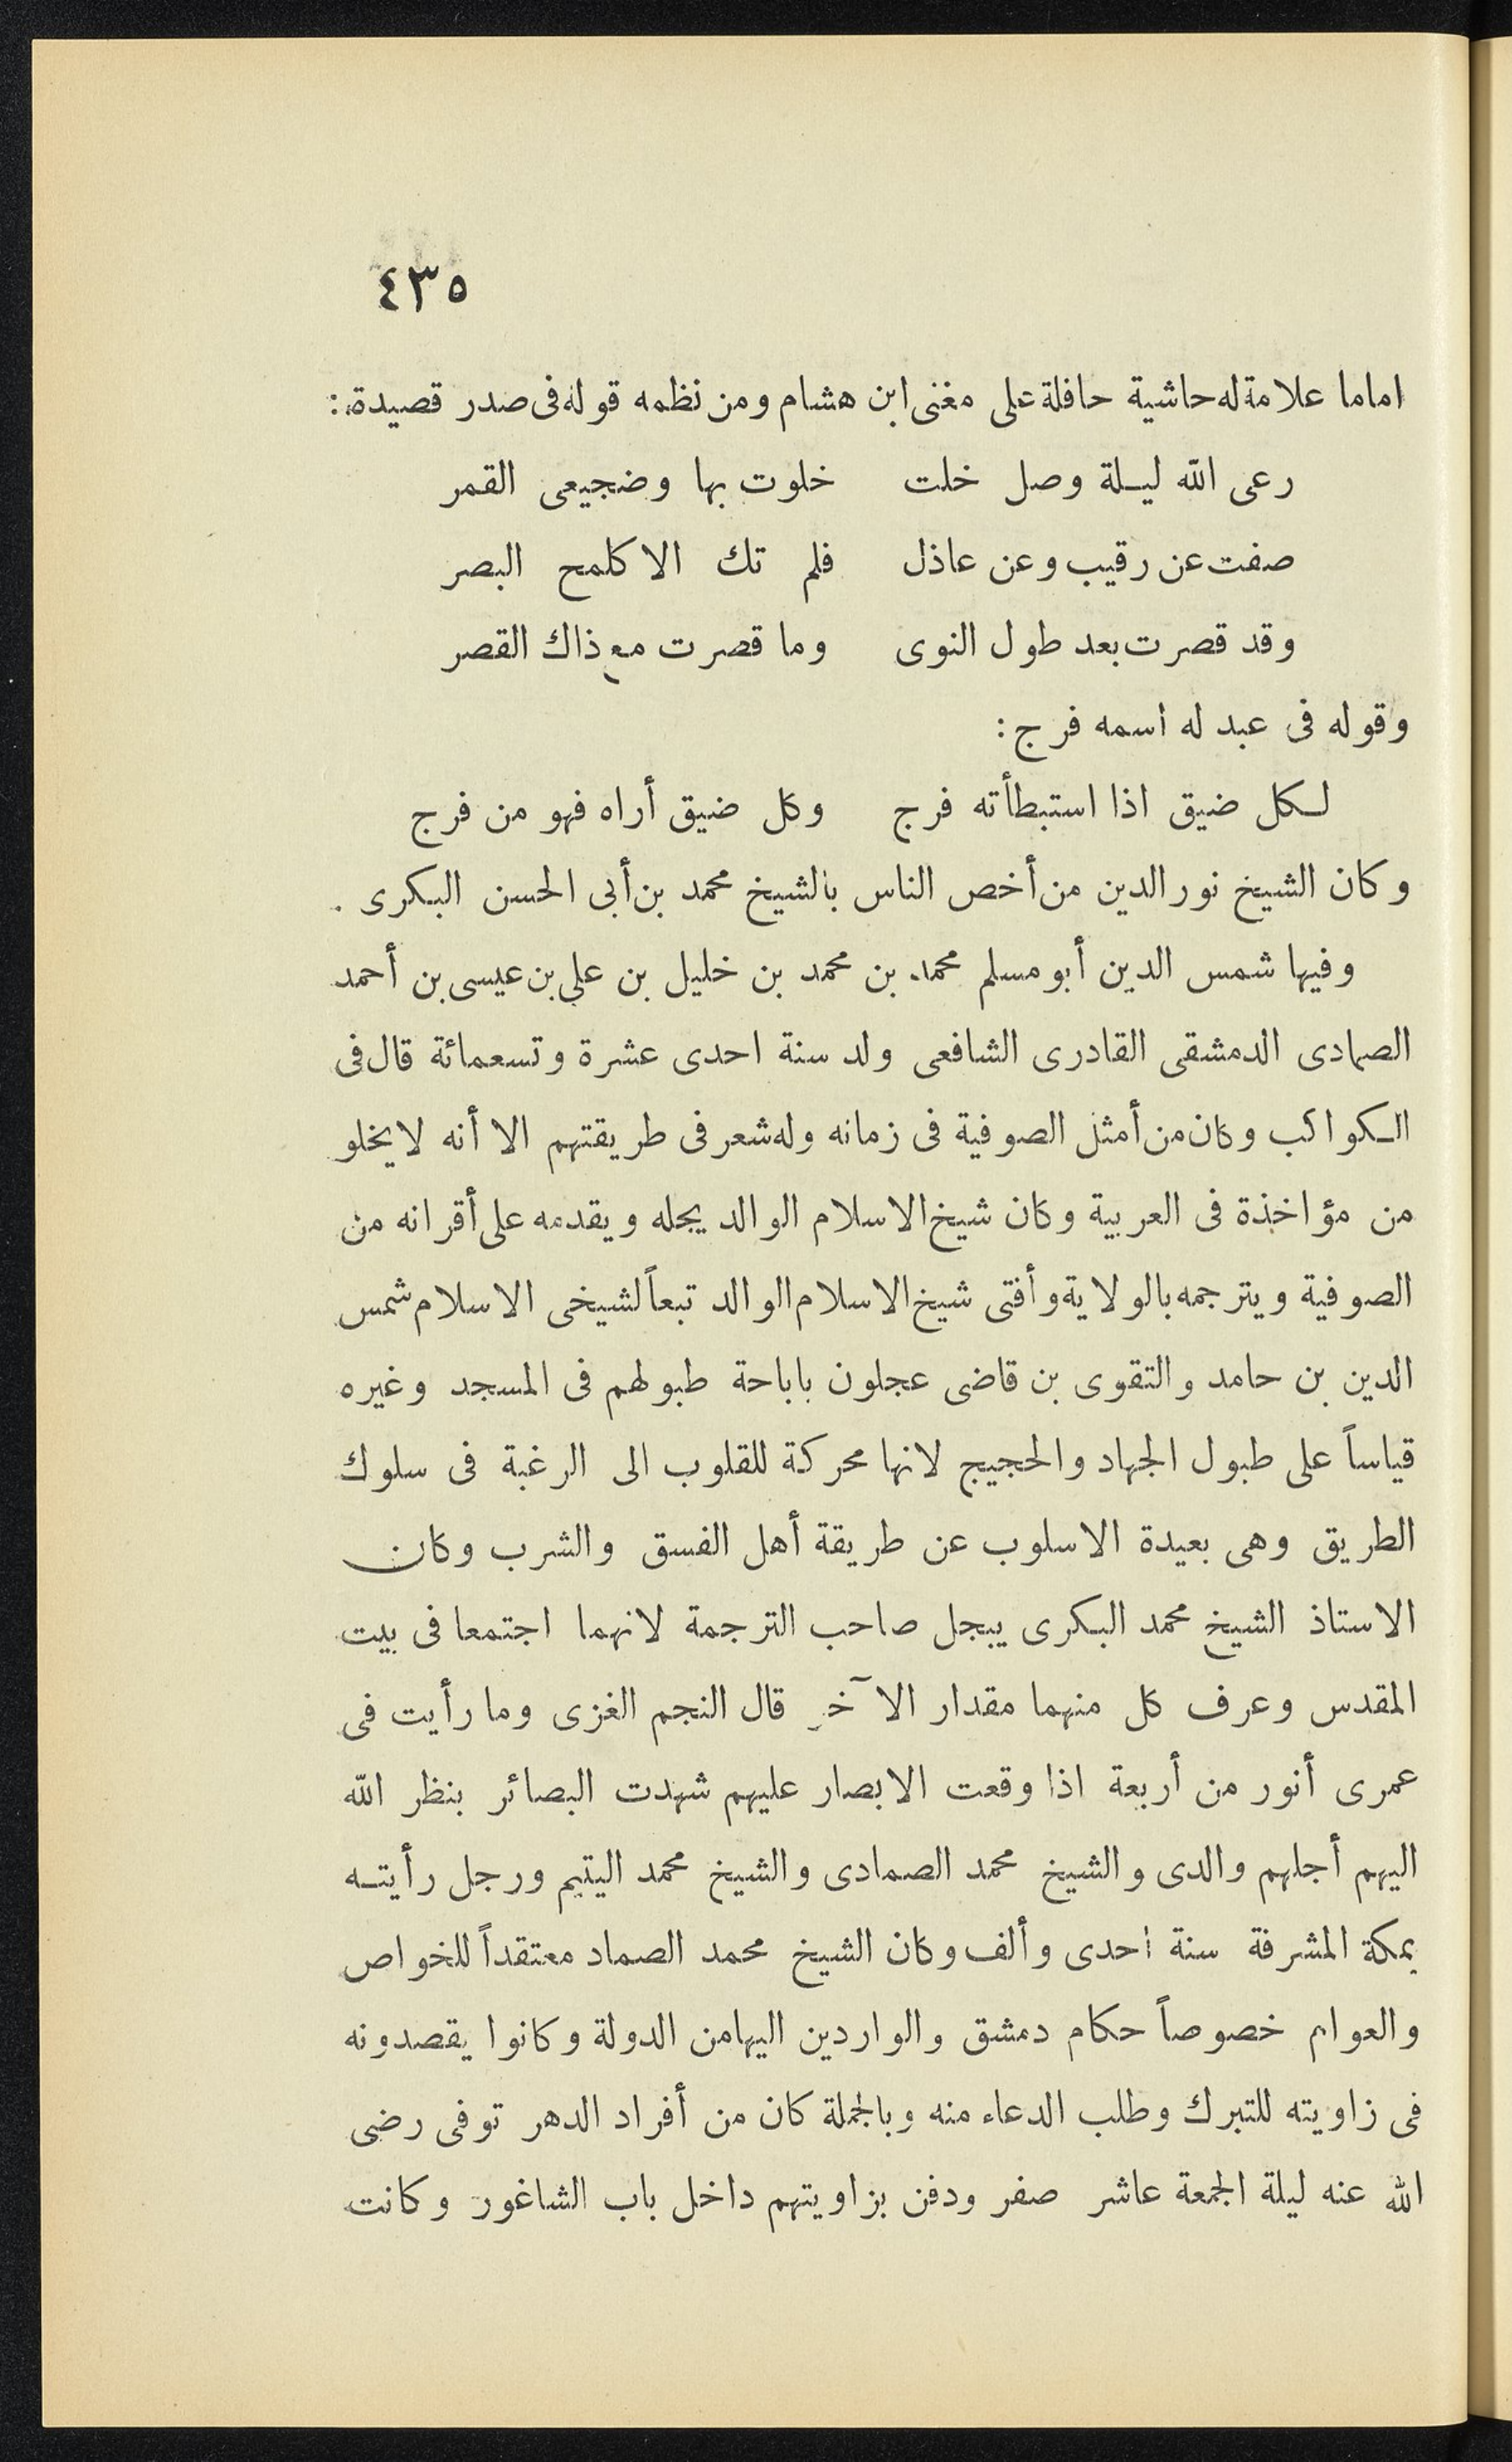 ٤٣٥
اماما علامة له حاشية حافلة على مغنى ابن هشام ومن نظمه قوله فى صدر قصيدة :
رعى الله ليلة وصل خلت خلوت بها وضجيعى القمر
صفت عن رقيب وعن عاذل فلم تك الا كلمح البصر
وقد قصرت بعد طول النوى وما قصرت مع ذاك القصر
وقوله فى عبد له اسمه فرج :
لكل ضيق اذا استبطأته فرج وكل ضيق أراه فهو من فرج
وكان الشيخ نور الدين من أخص الناس بالشيخ محمد بن أبى الحسن البكرى .
وفيها شمس الدين أبو مسلم محمد بن محمد بن خليل بن على بن عيسى بن أحمد
الصمادى الدمشقى القادرى الشافعى ولد سنة احدى عشرة وتسعمائة قال فى
الكواكب وكان من أمثل الصوفية فى زمانه وله شعر فى طريقتهم الا أنه لا يخلو
من مؤاخذة فى العربية وكان شيخ الاسلام الوالد يجله ويقدمه على أقرانه من
الصوفية ويترجمه بالولاية وأفتى شيخ الاسلام الوالد تبعاً لشيخى الاسلام شمس
الدين بن حامد والتقوى بن قاضى عجلون باباحة طبولهم فى المسجد وغيره
قياساً على طبول الجهاد والحجيج لانها محركة للقلوب الى الرغبة فى سلوك
الطريق وهى بعيدة الاسلوب عن طريقة أهل الفسق والشرب وكان
الاستاذ الشيخ محمد البكرى يبجل صاحب الترجمة لانهما اجتمعا فى بيت
المقدس وعرف كل منهما مقدار الآخر قال النجم الغزى وما رأيت فى
عمرى أنور من أربعة اذا وقعت الابصار عليهم شهدت البصائر بنظر الله
اليهم أجلهم والدى والشيخ محمد الصمادى والشيخ محمد اليتيم ورجل رأيته
بمكة المشرفة سنة احدى وألف وكان الشيخ محمد الصماد معتقداً للخواص
والعوام خصوصاً حكام دمشق والواردين اليها من الدولة وكانوا يقصدونه
فى زاويته للتبرك وطلب الدعاء منه وبالجملة كان من أفراد الدهر توفى رضى
الله عنه ليلة الجمعة عاشر صفر ودفن بزاويتهم داخل باب الشاغور وكانت